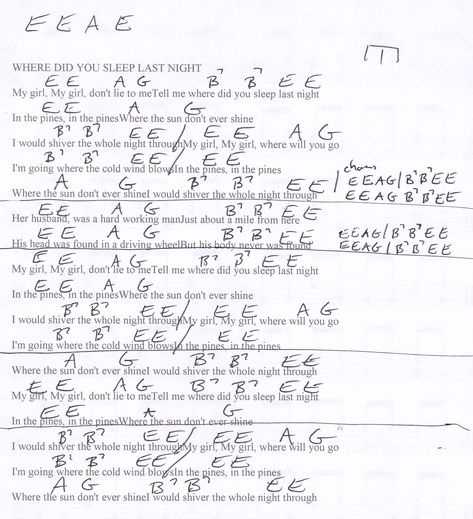 E E A E
WHERE DID YOU SLEEP LAST NIGHT
E E A G B⁷ B⁷ E E
My girl, My girl, don't lie to meTell me where did you sleep last night
E E A G
In the pines, in the pinesWhere the sun don't ever shine
B⁷ B⁷ E E / E E A G
I would shiver the whole night throughMy girl, My girl, where will you go
B⁷ B⁷ E E / E E
I'm going where the cold wind blowsIn the pines, in the pines
A G B⁷ B⁷ E E
Where the sun don't ever shineI would shiver the whole night through
chorus
E E A G | B⁷ B⁷ E E
E E A G B⁷ B⁷ E E
E E A G B⁷ B⁷ E E
Her husband, was a hard working manJust about a mile from here
E E A G B⁷ B⁷ E E
His head was found in a driving wheelBut his body never was found
E E A G | B⁷ B⁷ E E
E E A G | B⁷ B⁷ E E
E E A G B⁷ B⁷ E E
My girl, My girl, don't lie to meTell me where did you sleep last night
E E A G
In the pines, in the pinesWhere the sun don't ever shine
B⁷ B⁷ E E / E E A G
I would shiver the whole night throughMy girl, My girl, where will you go
B⁷ B⁷ E E / E E
I'm going where the cold wind blowsIn the pines, in the pines
A G B⁷ B⁷ E E
Where the sun don't ever shineI would shiver the whole night through
E E A G B⁷ B⁷ E E
My girl, My girl, don't lie to meTell me where did you sleep last night
E E A G
In the pines, in the pinesWhere the sun don't ever shine
B⁷ B⁷ E E / E E A G
I would shiver the whole night throughMy girl, My girl, where will you go
B⁷ B⁷ E E / E E
I'm going where the cold wind blowsIn the pines, in the pines
A G B⁷ B⁷ E E
Where the sun don't ever shineI would shiver the whole night through